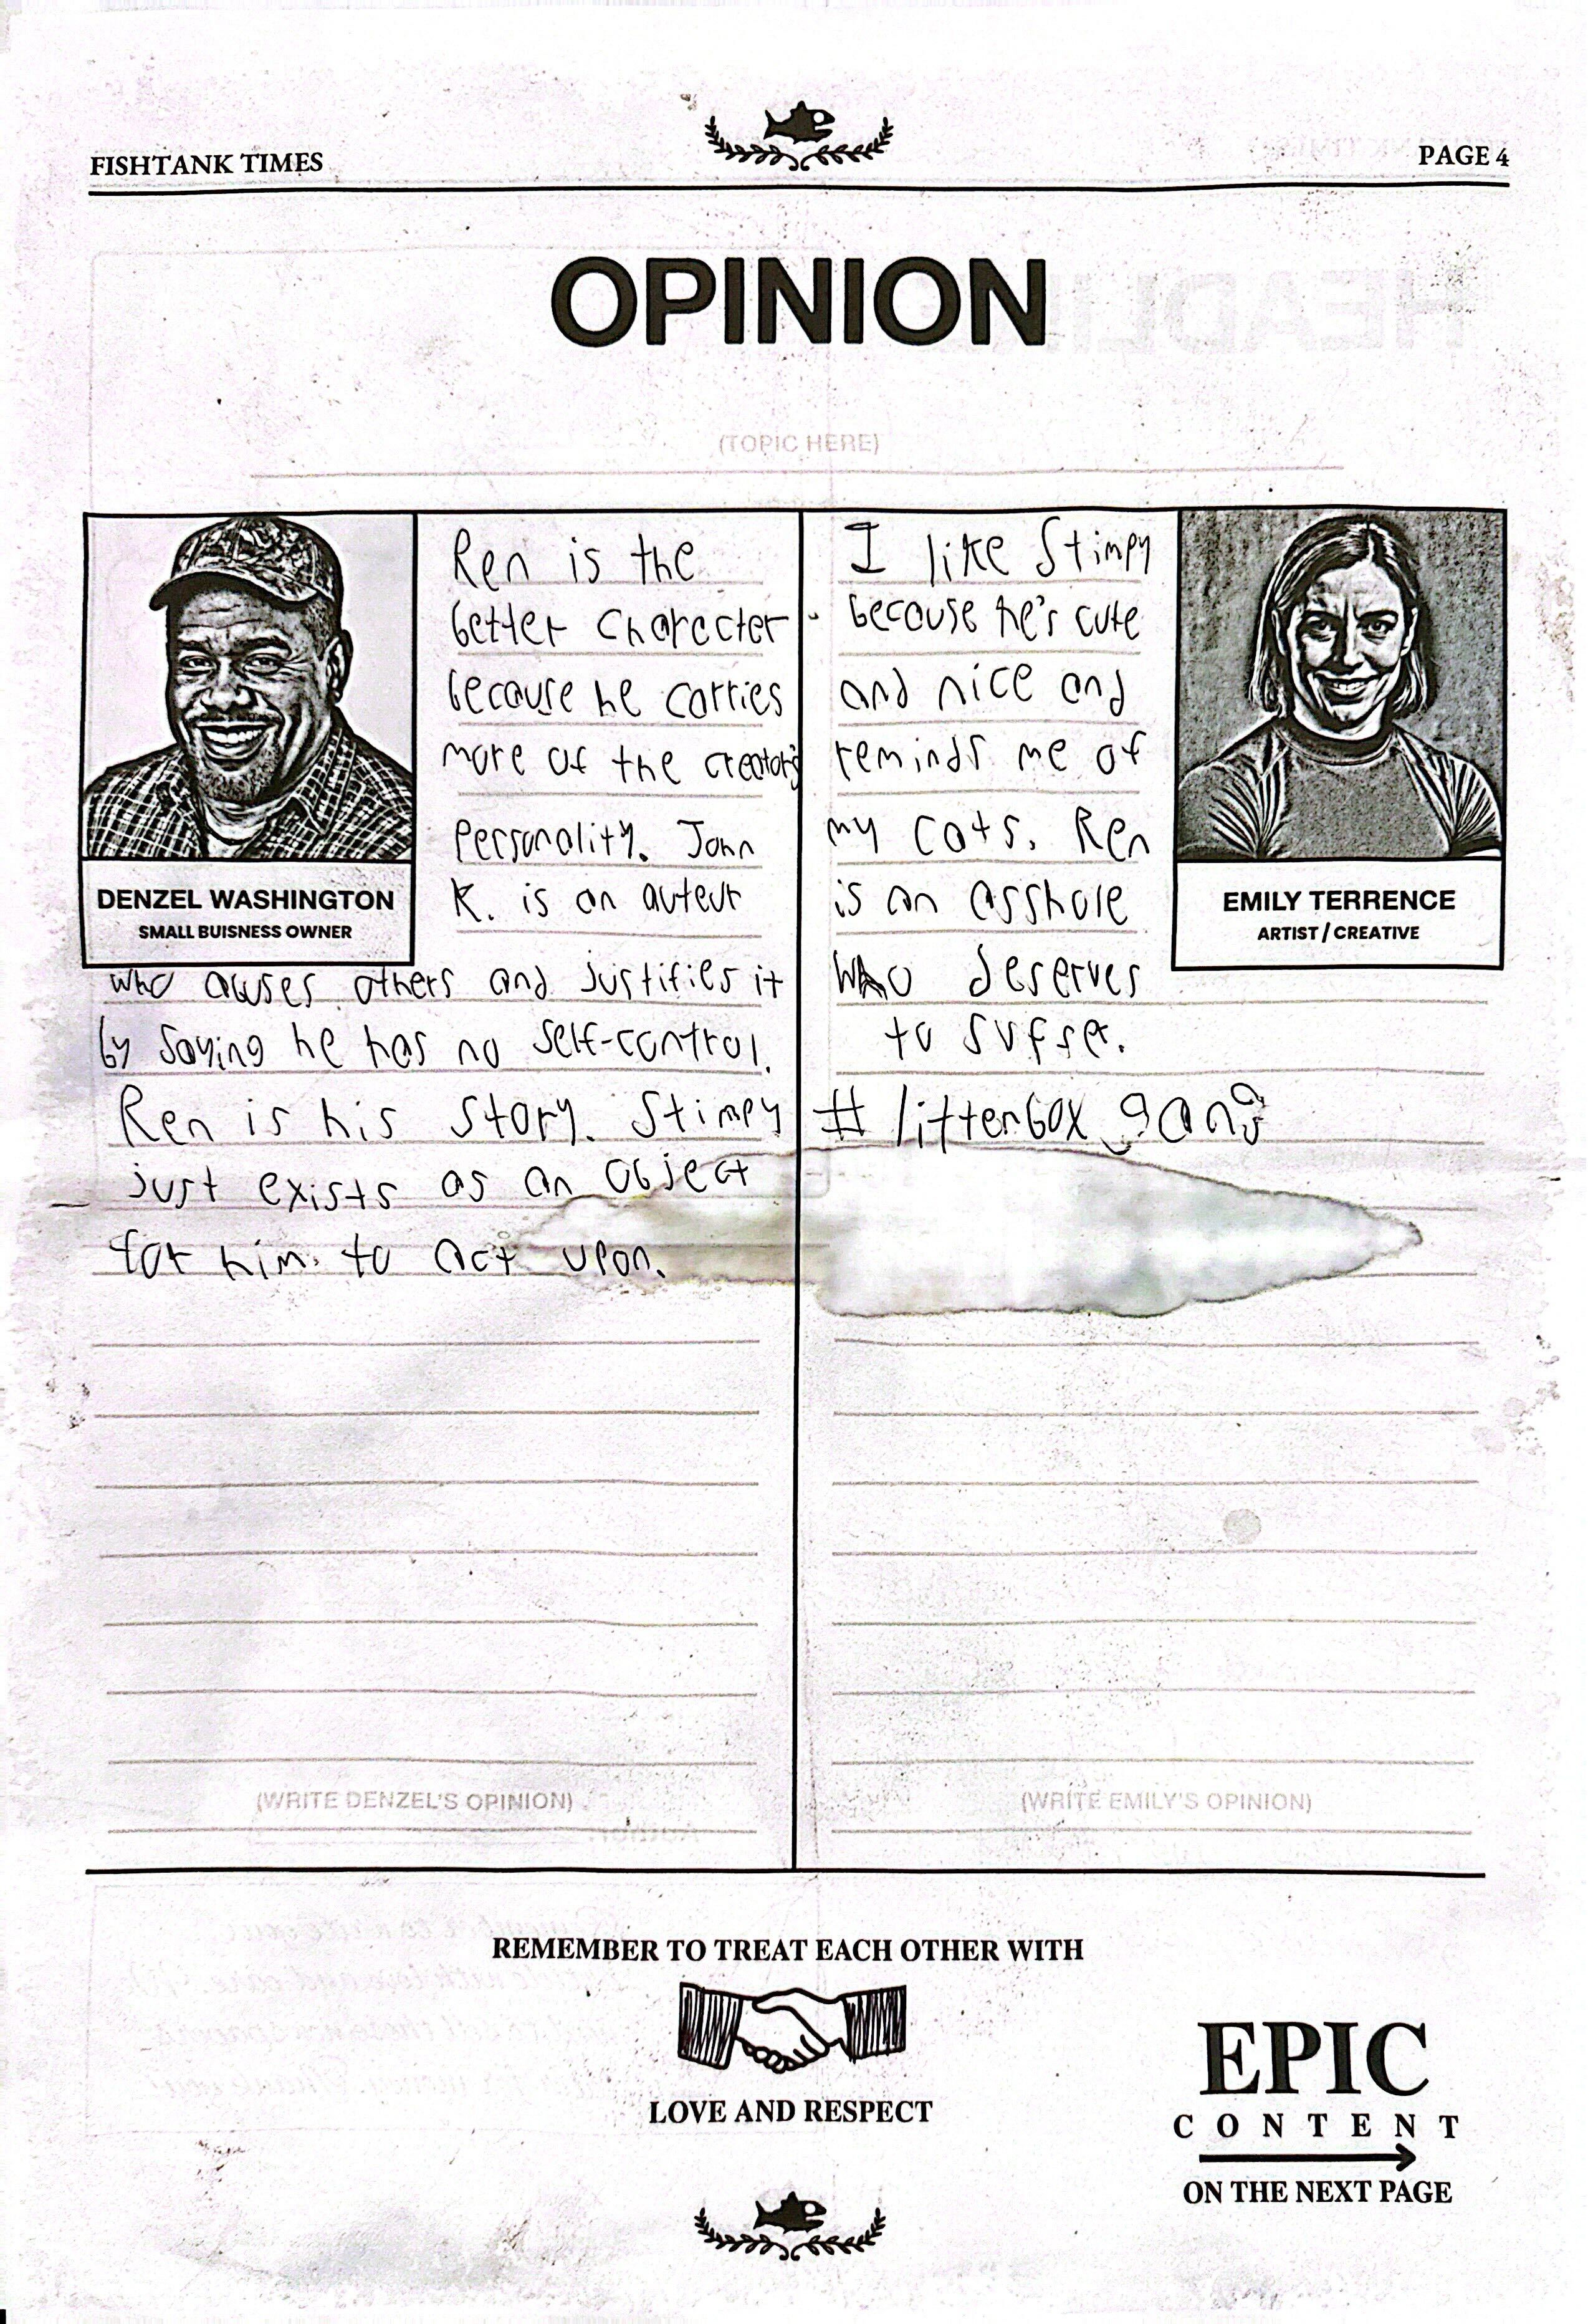 FISHTANK TIMES
PAGE 4
OPINION
(TOPIC HERE)
DENZEL WASHINGTON
SMALL BUISNESS OWNER
Ren is the
better charecter
because he carries
more of the creator's
personality. John
K. is an auteur
who abuses others and justifies it
by saying he has no self-control.
Ren is his story. Stimpy
just exists as an object
for him to act upon.
(WRITE DENZEL'S OPINION)
I like Stimpy
because he's cute
and nice and
reminds me of
my cats. Ren
is an asshole
who deserves
to suffer.
# litterbox gang
EMILY TERRENCE
ARTIST / CREATIVE
(WRITE EMILY'S OPINION)
REMEMBER TO TREAT EACH OTHER WITH
LOVE AND RESPECT
EPIC
CONTENT
ON THE NEXT PAGE